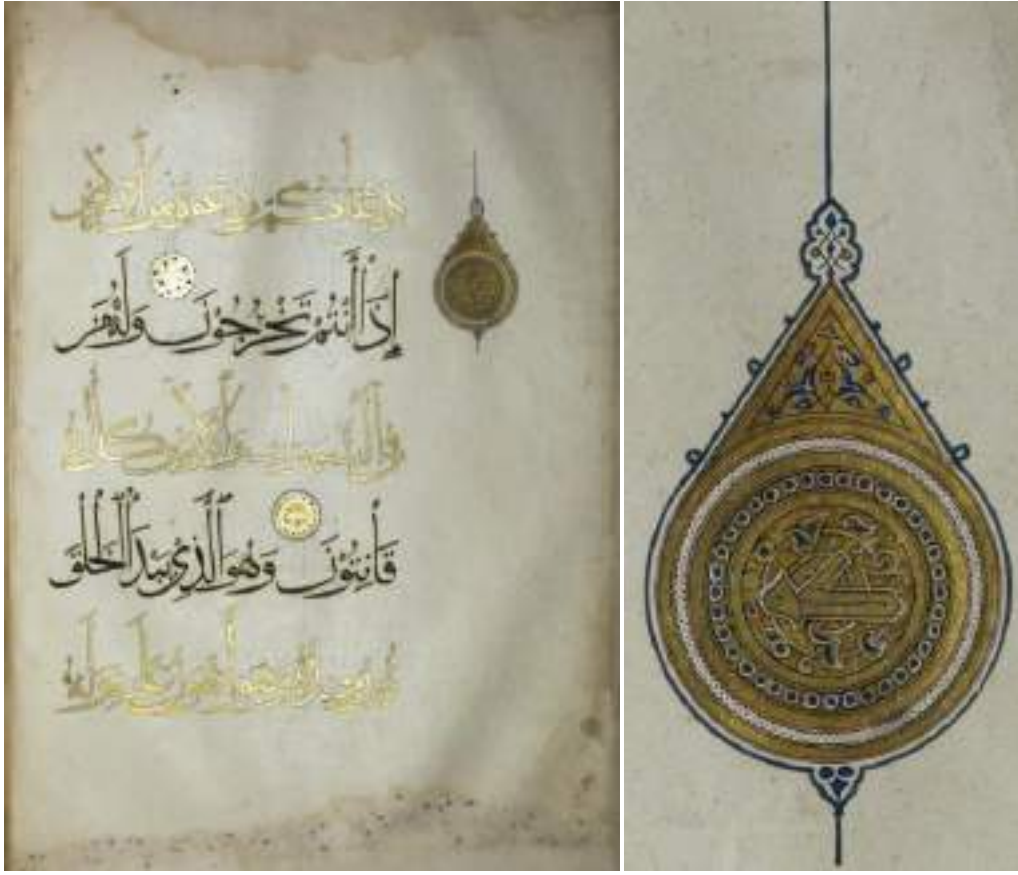 دعاكم دعوة من الأرض
إِذَا أَنْتُمْ تَخْرُجُونَ وَلَهُ مَنْ
في السموات والأرض كل له
قَانِتُونَ وَهُوَ الَّذِي يَبْدَأُ الْخَلْقَ
ثم يعيده وهو أهون عليه وله